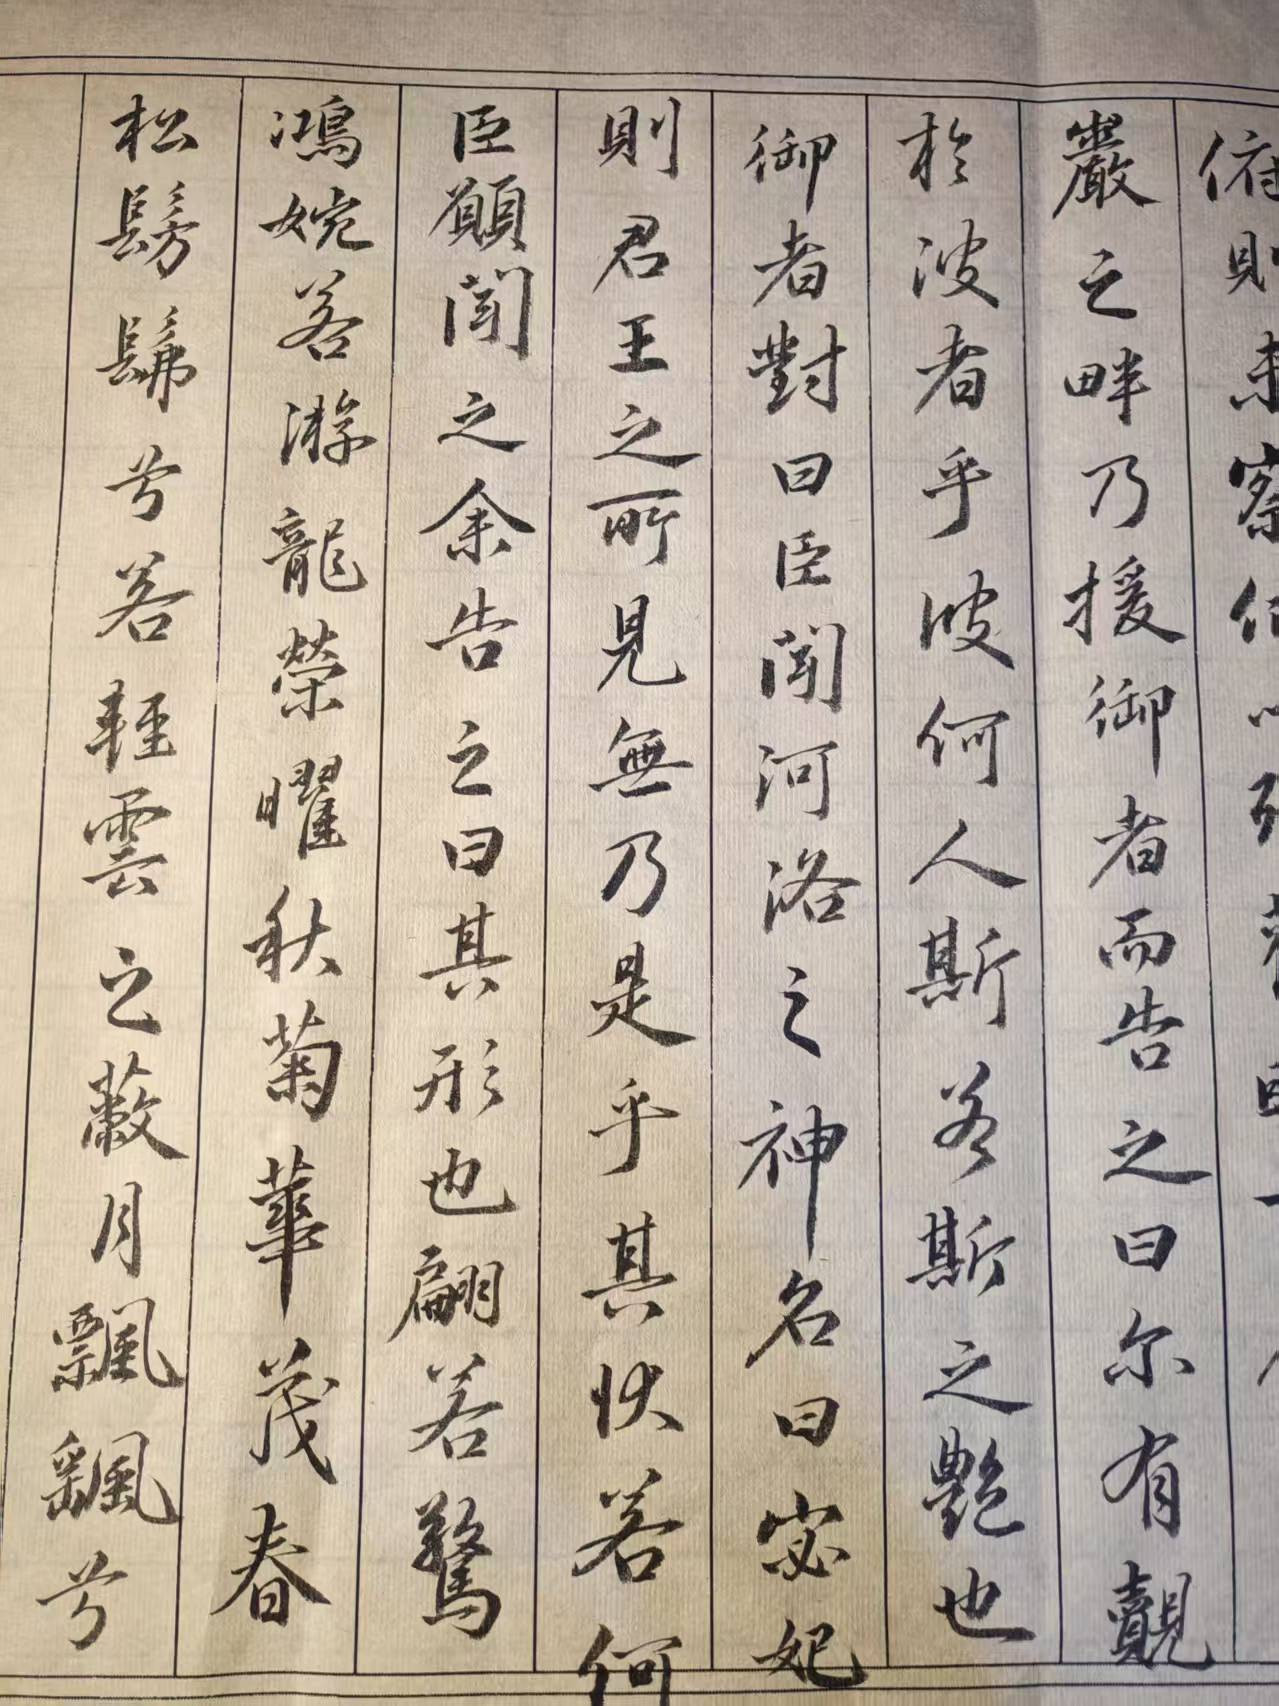 俯則未察仰以殊
巖之畔乃援御者而告之曰尔有覿
於彼者乎彼何人斯若斯之艷也
御者對曰臣聞河洛之神名曰宓妃
則君王之所見無乃是乎其狀若何
臣願聞之余告之曰其形也翩若驚
鴻婉若游龍榮曜秋菊華茂春
松髣髴兮若輕雲之蔽月飄颻兮